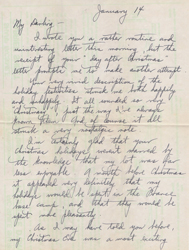 January 14
My Darling —
I wrote you a rather routine and
uninteresting letter this morning, but the
receipt of your day after Christmas
letter me to make another attempt
Your very vivid description of the
holiday festivities struck me both happily
and unhappily. It all sounded so very
"Christmasy", just the way I've always
known them. And of course it all
struck a very nostalgic note
I'm certainly glad that your
Christmas holidays weren't marred by
the knowledge that my lot was far
less enjoyable. A month before Christmas
it appeared very definitely that my
holidays would be spent on the
and that they would be
quite pleasantly
As I may have told you before,
my Christmas Eve was a most